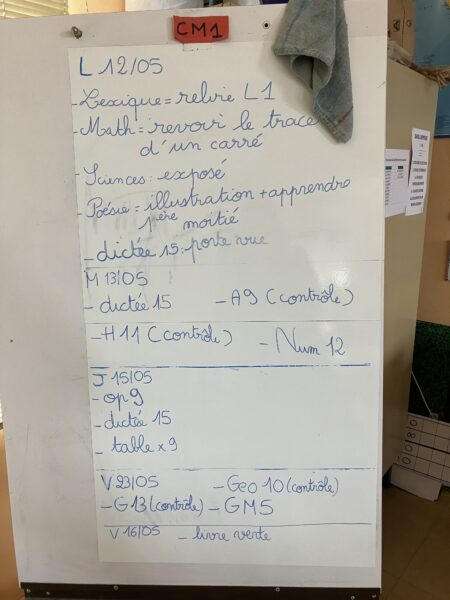 CM1
L 12/05
- Lexique = relire L1
- Math : revoir le tracé
d'un carré
- Sciences : exposé
- Poésie = illustration + apprendre
1ère moitié
- dictée 15 : porte vue
M 13/05
- dictée 15 - A9 (contrôle)
- H11 (contrôle) - Num 12
J 15/05
- op 9
- dictée 15
- table x 9
V 23/05 - Geo 10 (contrôle)
- G13 (contrôle) - GM5
V 16/05 - livre verte